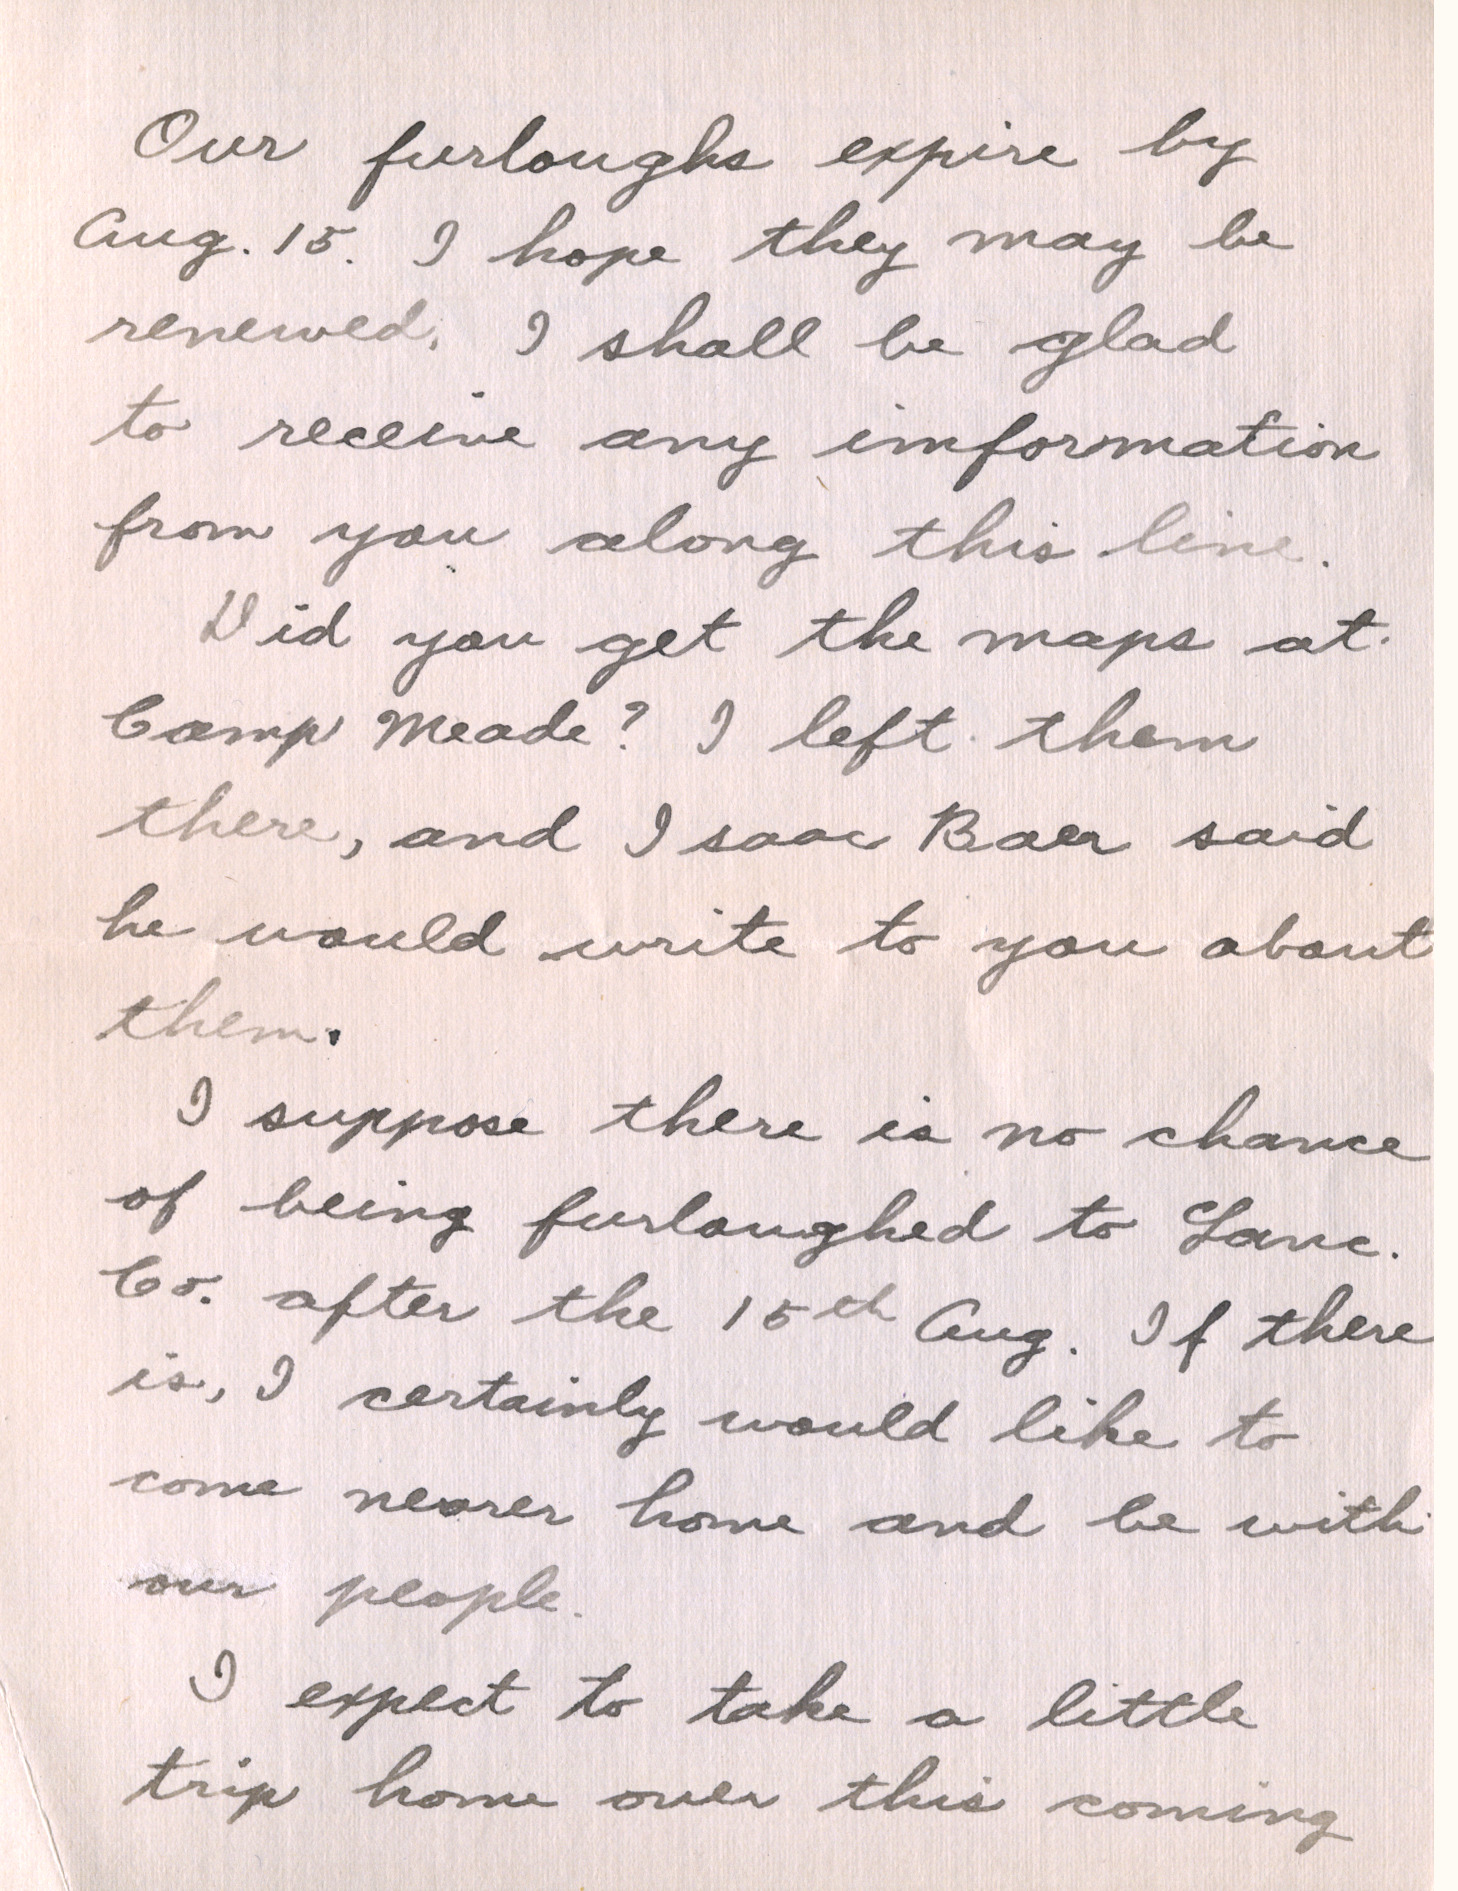 Our furloughs expire by
Aug. 15. I hope they may be
renewed. I shall be glad
to receive any imformation
from you along this line.
Did you get the maps at
Camp Meade? I left them
there, and Isaac Baer said
he would write to you about
them.
I suppose there is no chance
of being furloughed to Lanc.
Co. after the 15th Aug. If there
is, I certainly would like to
come nearer home and be with
our people.
I expect to take a little
trip home over this coming